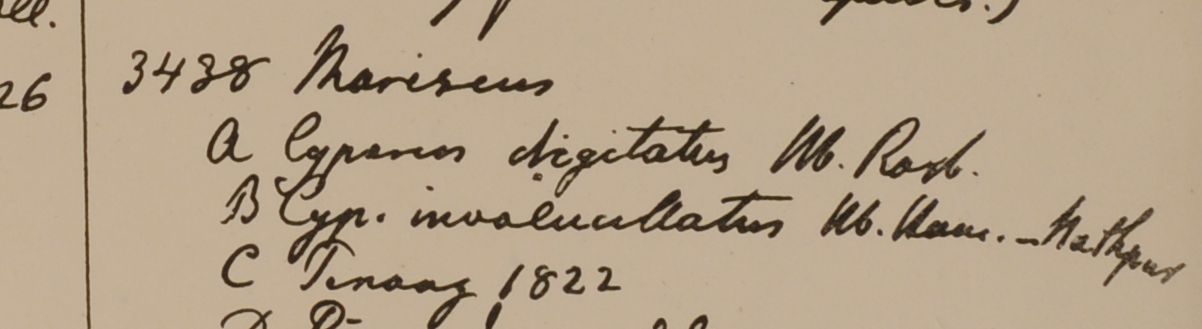 ll.
26
3438 Mariscus
A Cyperus digitatus Hb. Roxb.
B Cyp. involucellatus Hb. Ham. - Nathpur
C Penang 1822